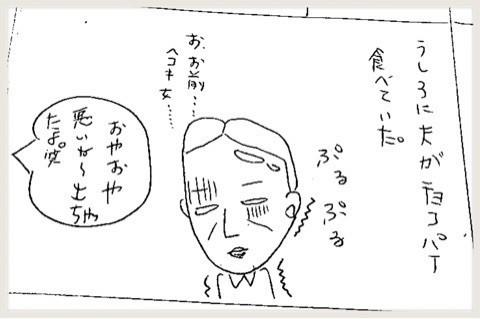 うしろに夫がチョコパイ
食べていた。
ぷるぷる
お、お前…
ヘコキ女……
おやおや
悪いが〜出ちゃっ
たよ。笑